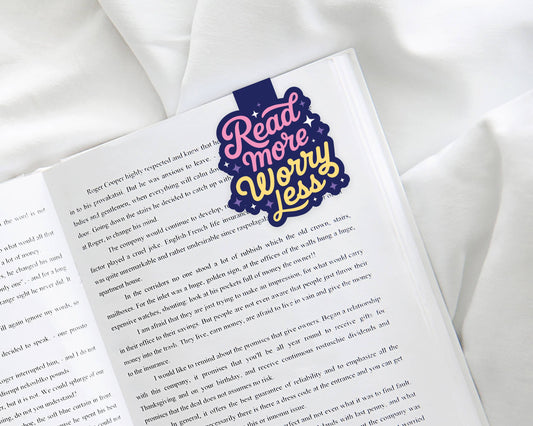 Read
More
Worry
Less
word is not
what would all that
a lot of money
he changed his mind
only one", - and for a long
range sight he never did. It
ll again ignore my words, so
decided to speak. - one pronto
Roger interrupted him, - and I do not
disrupt nekoshlko pounds
er, but it is not. We could splurge of our
oing, do not you understand?
her, the soft blue curtain in front
cause he spent his best
could not
Roger Cooper highly respected and knew that he
in to his provakatsii. But he was anxious to leave.
ladies and gentlemen, when everything will calm down
door. Going down the stairs he decided to catch up
at Roger, to change his mind.
The company would continue to develop,
factor played a cruel joke. English French life insurance
was quite unremarkable and rather undesirable since
apartment house.
In the corridors no one stood a lot of rubbish which the old crown, stairs,
mailboxes. For the inlet was a huge, golden sign, at the offices of the walls hung a huge,
expensive watches, shouting: look at his pockets full of money the owner!!
I am afraid that they are just trying to make an impression, for what would carry
in their office to their savings. But people are not even aware that people just throw their
money into the trash. They live, earn money, are afraid to live in vain and give the money
to the insurance.
I would like to remind about the promises that give owners. Began a relationship
with this company, it promises that you'll be all year round to receive gifts for
Thanksgiving and on your birthday, and receive continuous rostuschie dividends and
promises that the deal does not assumes no risk.
In general, it offers the best guarantee of reliability and to emphasize all the
necessarily there is a dress code at the entrance and you can get
this or immenu issue.
perfect and not even what it was to find fault
lauds with last penny, and what
the company was